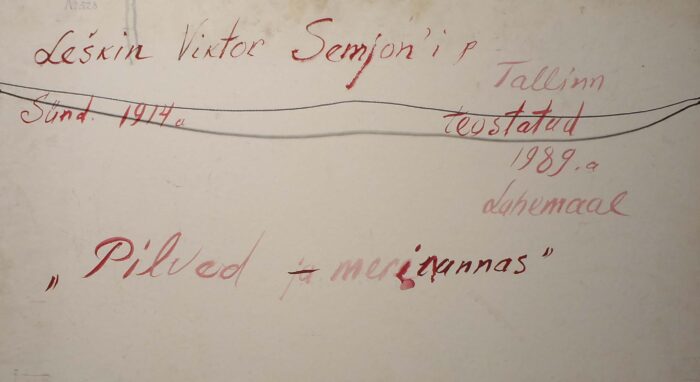 Leškin Viktor Semjon'i p
Tallinn
Sünd. 1914a
teostatud
1989.a
Lahemaal
„Pilved ja merirannas"